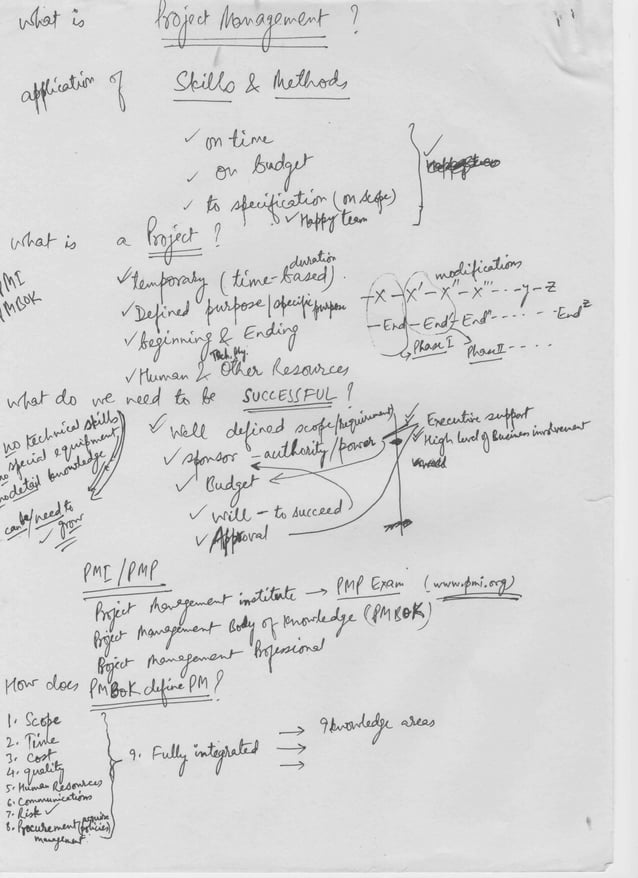 what is Project Management ?
application of Skills & Methods
✓ on time
✓ on budget
✓ to specification (on scope)
✓ Happy team
what is a Project ?
PMI
PMBOK
✓ temporary (time-based)
duration
✓ Defined purpose/specific purpose
✓ beginning & Ending
✓ Human & Other Resources
modifications
-X-X'-X''-X'''----y-Z
-End-End'-End''------End^z
Phase I
Phase II ----
what do we need to be SUCCESSFUL ?
no technical skills
no special equipment
no detail knowledge
can be/need to
✓ grow
✓ well defined scope/requirement
✓ sponsor - authority/power
✓ Budget
✓ will - to succeed
✓ Approval
✓ Executive support
✓ High level of Business involvement
PMI/PMP
Project Management institute → PMP Exam (www.pmi.org)
Project Management Body of Knowledge (PMBOK)
Project Management Professional
How does PMBOK define PM?
1. Scope
2. Time
3. Cost
4. quality
5. Human Resources
6. Communications
7. Risk ✓
8. Procurement (acquire policies)
management
9. Fully integrated → 9 knowledge areas
→
→